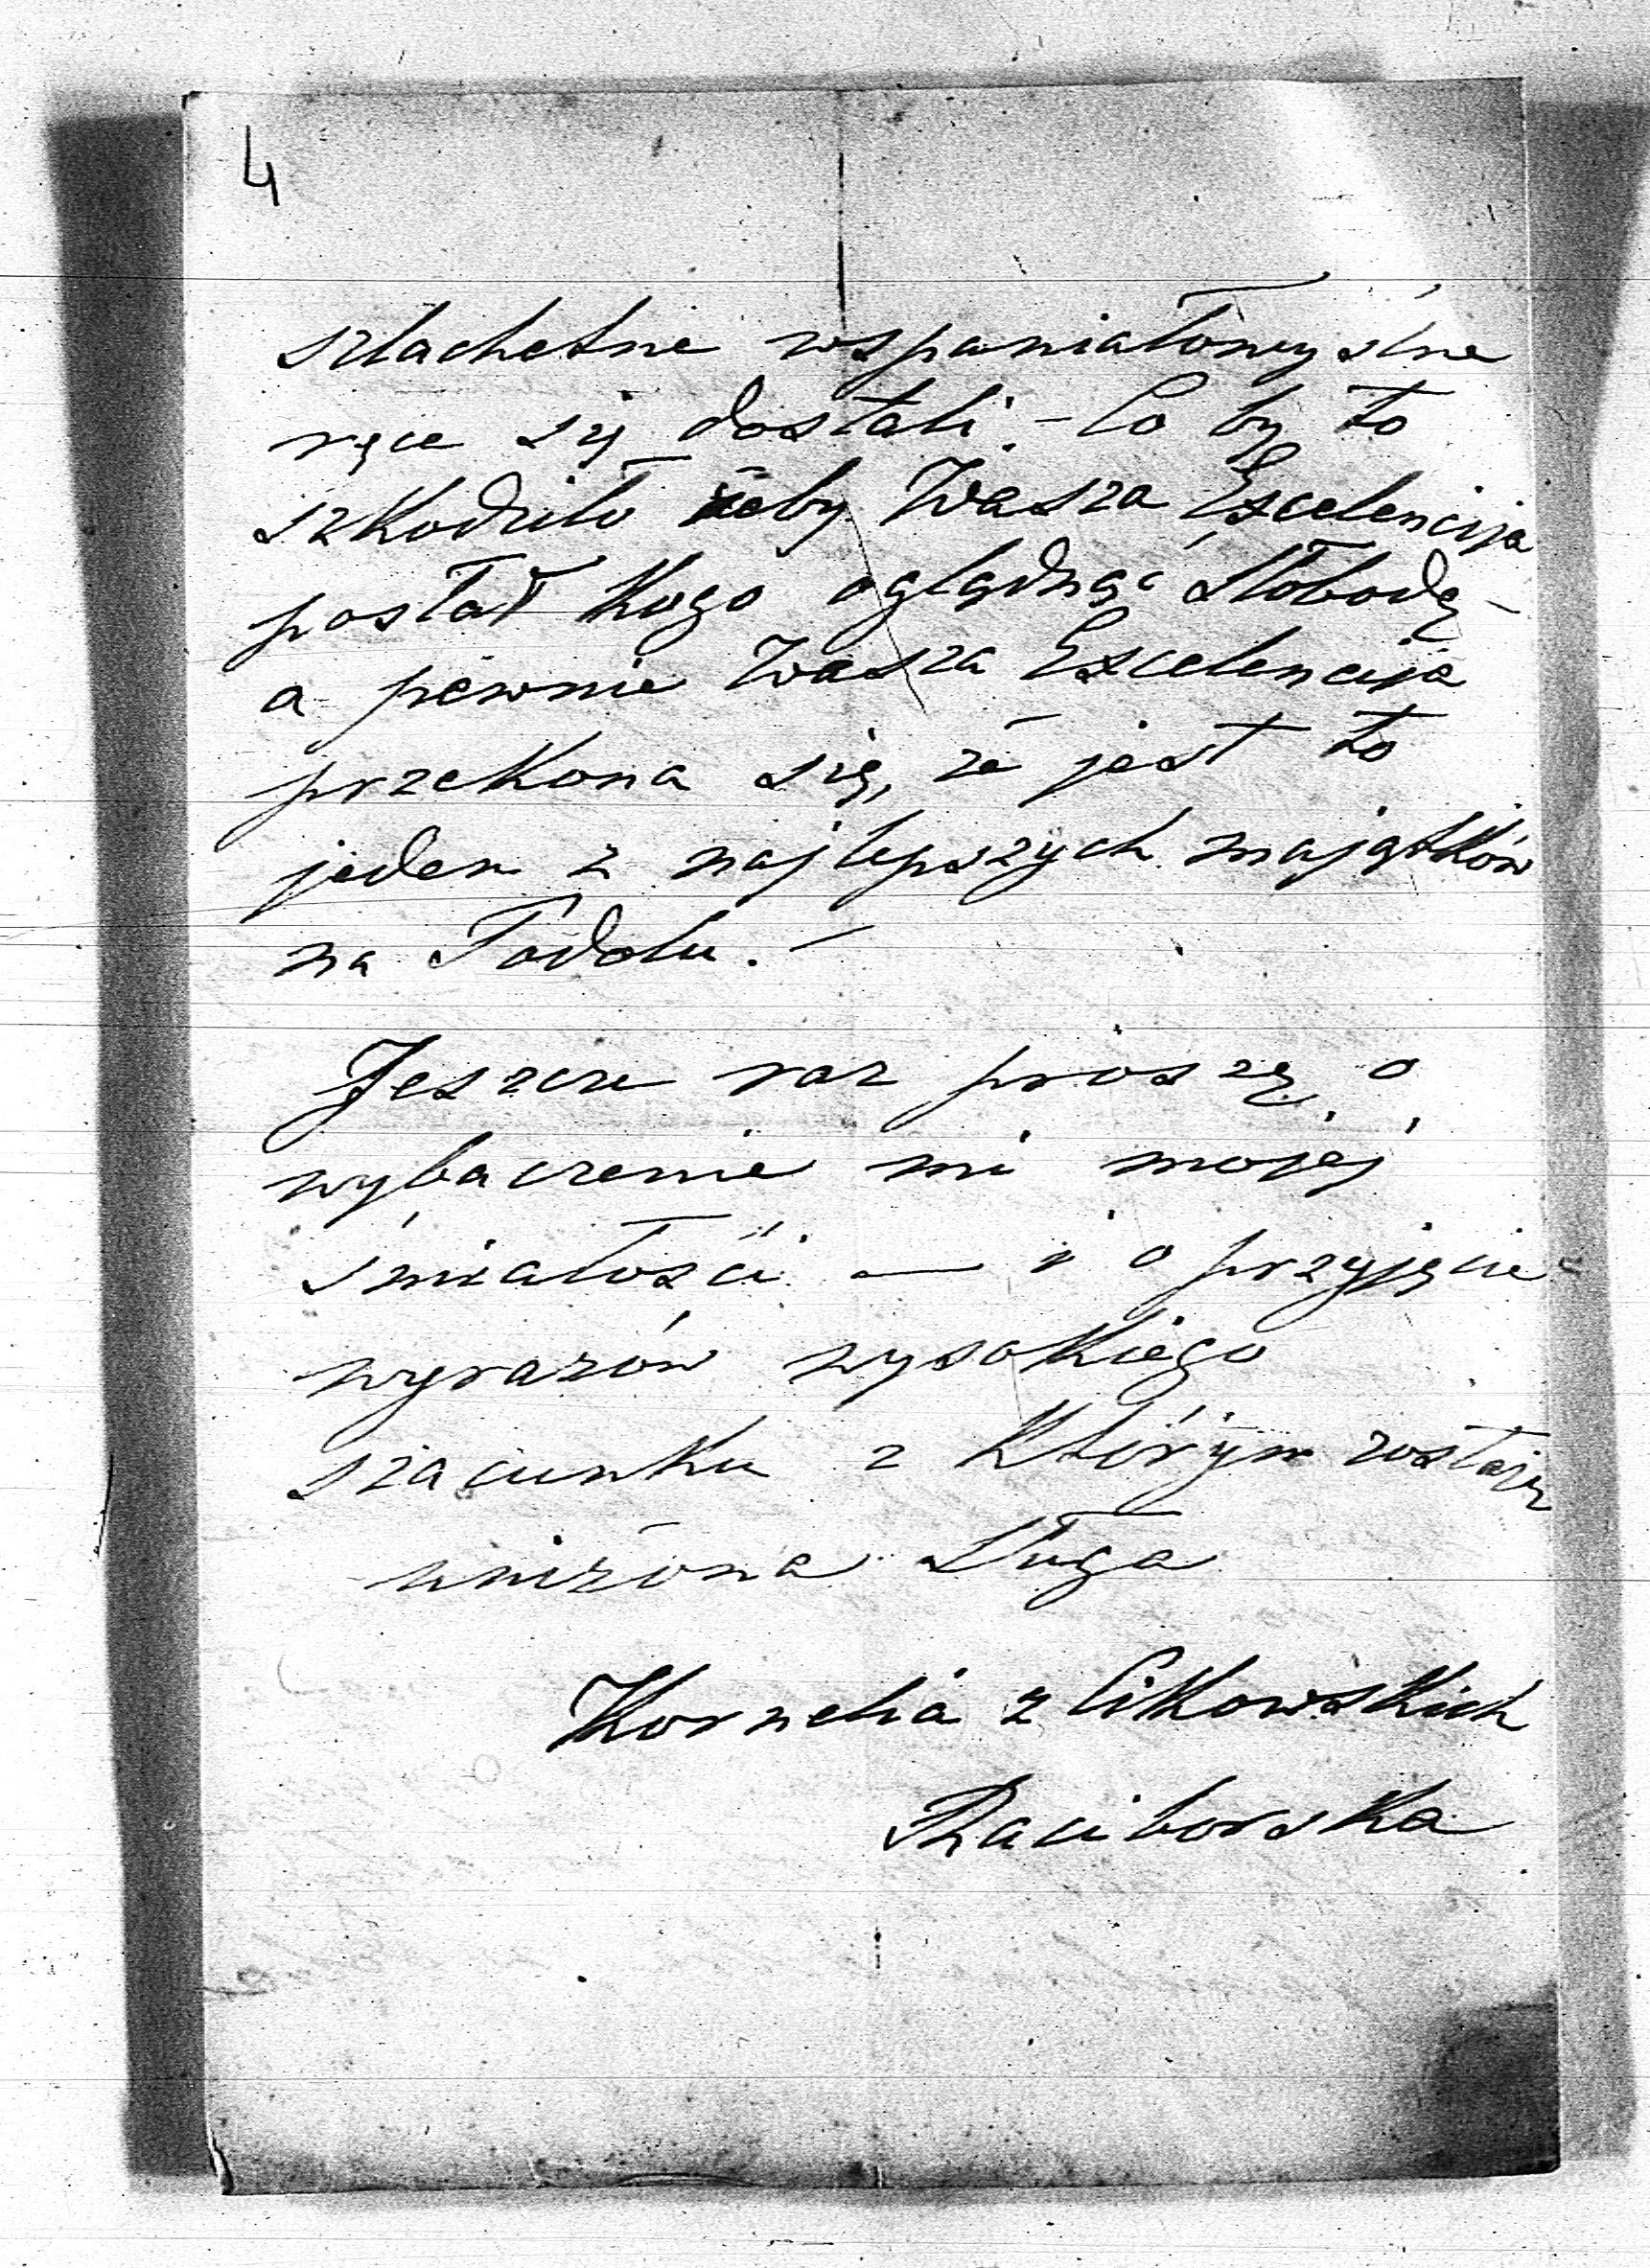 4
szlachetne wspaniałomyślne
ręce się dostali. - Co by to
szkodziło żeby Wasza Excelencija
posłał kogo oglądnąć Słobodę -
a pewnie Wasza Excelencija
przekona się, że jest to
jeden z najlepszych majątków
na Podolu. -
Jeszcze raz proszę o
wybaczenie mi mojéj
śmiałości — i o przyjęcie
wyrazów wysokiego
szacunku z którym zostaję
uniżona Sługa
Kornelia z Cikowskich
Raciborska